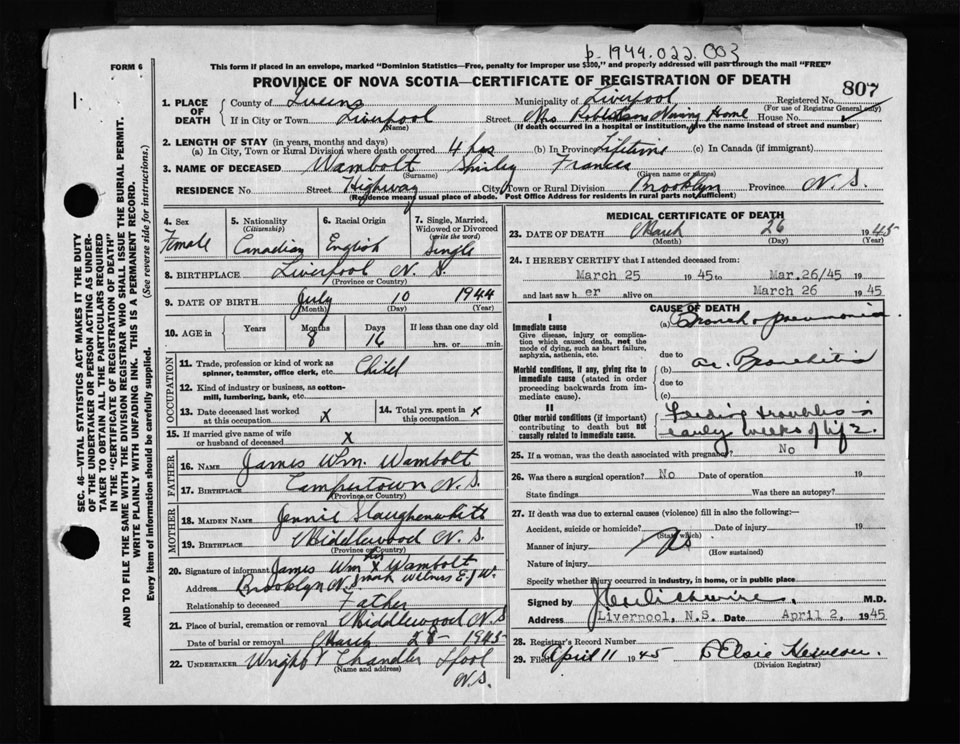 b. 1944.022.003
FORM 6
This form if placed in an envelope, marked "Dominion Statistics—Free, penalty for improper use $300," and properly addressed will pass through the mail "FREE"
PROVINCE OF NOVA SCOTIA—CERTIFICATE OF REGISTRATION OF DEATH
807
1. PLACE OF DEATH
County of Queens Municipality of Liverpool Registered No.
(For use of Registrar General only)
If in City or Town Liverpool Street Mrs Robertsons Nursing Home House No.
(Name) (If death occurred in a hospital or institution, give the name instead of street and number)
2. LENGTH OF STAY (in years, months and days)
(a) In City, Town or Rural Division where death occurred 4 hrs (b) In Province Lifetime (c) In Canada (if immigrant)
3. NAME OF DECEASED Wambolt Shirley Frances
(Surname) (Given name or names)
RESIDENCE No. Street Highway City, Town or Rural Division Brooklyn Province N.S.
(Residence means usual place of abode. Post Office Address for residents in rural parts not sufficient)
4. Sex Female
5. Nationality (Citizenship) Canadian
6. Racial Origin English
7. Single, Married, Widowed or Divorced (write the word) Single
8. BIRTHPLACE Liverpool N.S.
(Province or Country)
9. DATE OF BIRTH July 10 1944
(Month) (Day) (Year)
10. AGE in Years Months 8 Days 16 If less than one day old
hrs. or min.
OCCUPATION
11. Trade, profession or kind of work as spinner, teamster, office clerk, etc. Child
12. Kind of industry or business, as cotton-mill, lumbering, bank, etc.
13. Date deceased last worked at this occupation x
14. Total yrs. spent in this occupation x
15. If married give name of wife or husband of deceased x
FATHER
16. NAME James Wm. Wambolt
17. BIRTHPLACE Camperstown N.S.
(Province or Country)
MOTHER
18. MAIDEN NAME Jennie Slaughenwhite
19. BIRTHPLACE Middlewood N.S.
(Province or Country)
20. Signature of informant James Wm his X mark Wambolt
Address Brooklyn N.S. Witness E.J.W.
Relationship to deceased Father
21. Place of burial, cremation or removal Middlewood N.S
Date of burial or removal March 28 1945
22. UNDERTAKER Wright Chandler Lpool
(Name and address)
N.S.
MEDICAL CERTIFICATE OF DEATH
23. DATE OF DEATH March 26 1945
(Month) (Day) (Year)
24. I HEREBY CERTIFY that I attended deceased from:
March 25 1945 to Mar.26/45 19
and last saw her alive on March 26 1945
CAUSE OF DEATH
I
Immediate cause (a) Broncho pneumonia.
Give disease, injury or complication which caused death, not the mode of dying, such as heart failure, asphyxia, asthenia, etc.
due to
Morbid conditions, if any, giving rise to immediate cause (stated in order proceeding backwards from immediate cause).
(b) ac. Bronchitis
due to
(c)
II
Other morbid conditions (if important) contributing to death but not causally related to immediate cause.
Feeding troubles in
early weeks of life.
25. If a woman, was the death associated with pregnancy? No
26. Was there a surgical operation? No Date of operation 19
State findings Was there an autopsy?
27. If death was due to external causes (violence) fill in also the following:—
Accident, suicide or homicide? Date of injury 19
(State which)
Manner of injury No
(How sustained)
Nature of injury
Specify whether injury occurred in industry, in home, or in public place
Signed by M.D.
Address Liverpool, N.S. Date April 2, 1945
28. Registrar's Record Number
29. Filed April 11 1945
(Division Registrar)
SEC. 46—VITAL STATISTICS ACT MAKES IT THE DUTY
OF THE UNDERTAKER OR PERSON ACTING AS UNDER-
TAKER TO OBTAIN ALL THE PARTICULARS REQUIRED
IN THE "CERTIFICATE OF REGISTRATION OF DEATH"
AND TO FILE THE SAME WITH THE DIVISION REGISTRAR WHO SHALL ISSUE THE BURIAL PERMIT.
WRITE PLAINLY WITH UNFADING INK. THIS IS A PERMANENT RECORD.
Every item of information should be carefully supplied. (See reverse side for instructions.)